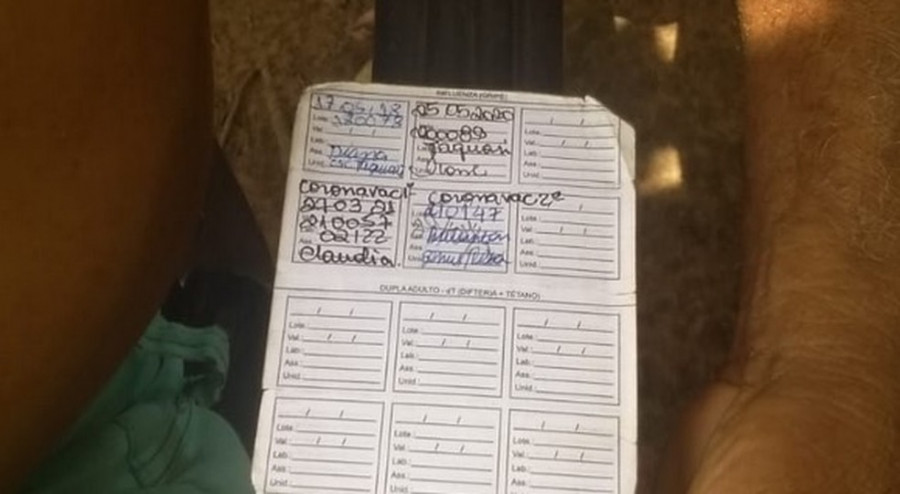 INFLUENZA (GRIPE)
17.05.18
Lote: 180073
Val / /
Lab:
Ass
Unid
25 05 2020
200089
Taquari
/ /
Lote:
Val: / /
Lab.:
Ass.:
Unid.:
Coronavac 1ª
27 03 21
210057
02/22
Claudia.
Coronavac 2ª
210147
/
Lote:
Val.: / /
Lab.:
Ass.:
Unid.:
DUPLA ADULTO - dT (DIFTERIA + TÉTANO)
/ /
Lote:
Val.: / /
Lab.:
Ass.:
Unid.:
/ /
Lote:
Val.: / /
Lab.:
Ass.:
Unid.:
/ /
Lote:
Val.: / /
Lab.:
Ass.:
Unid.:
/ /
Lote:
Val.: / /
Lab.:
Ass.:
Unid.:
/ /
Lote:
Val.: / /
Lab.:
Ass.:
Unid.:
/ /
Lote:
Val.: / /
Lab.:
Ass.:
Unid.: